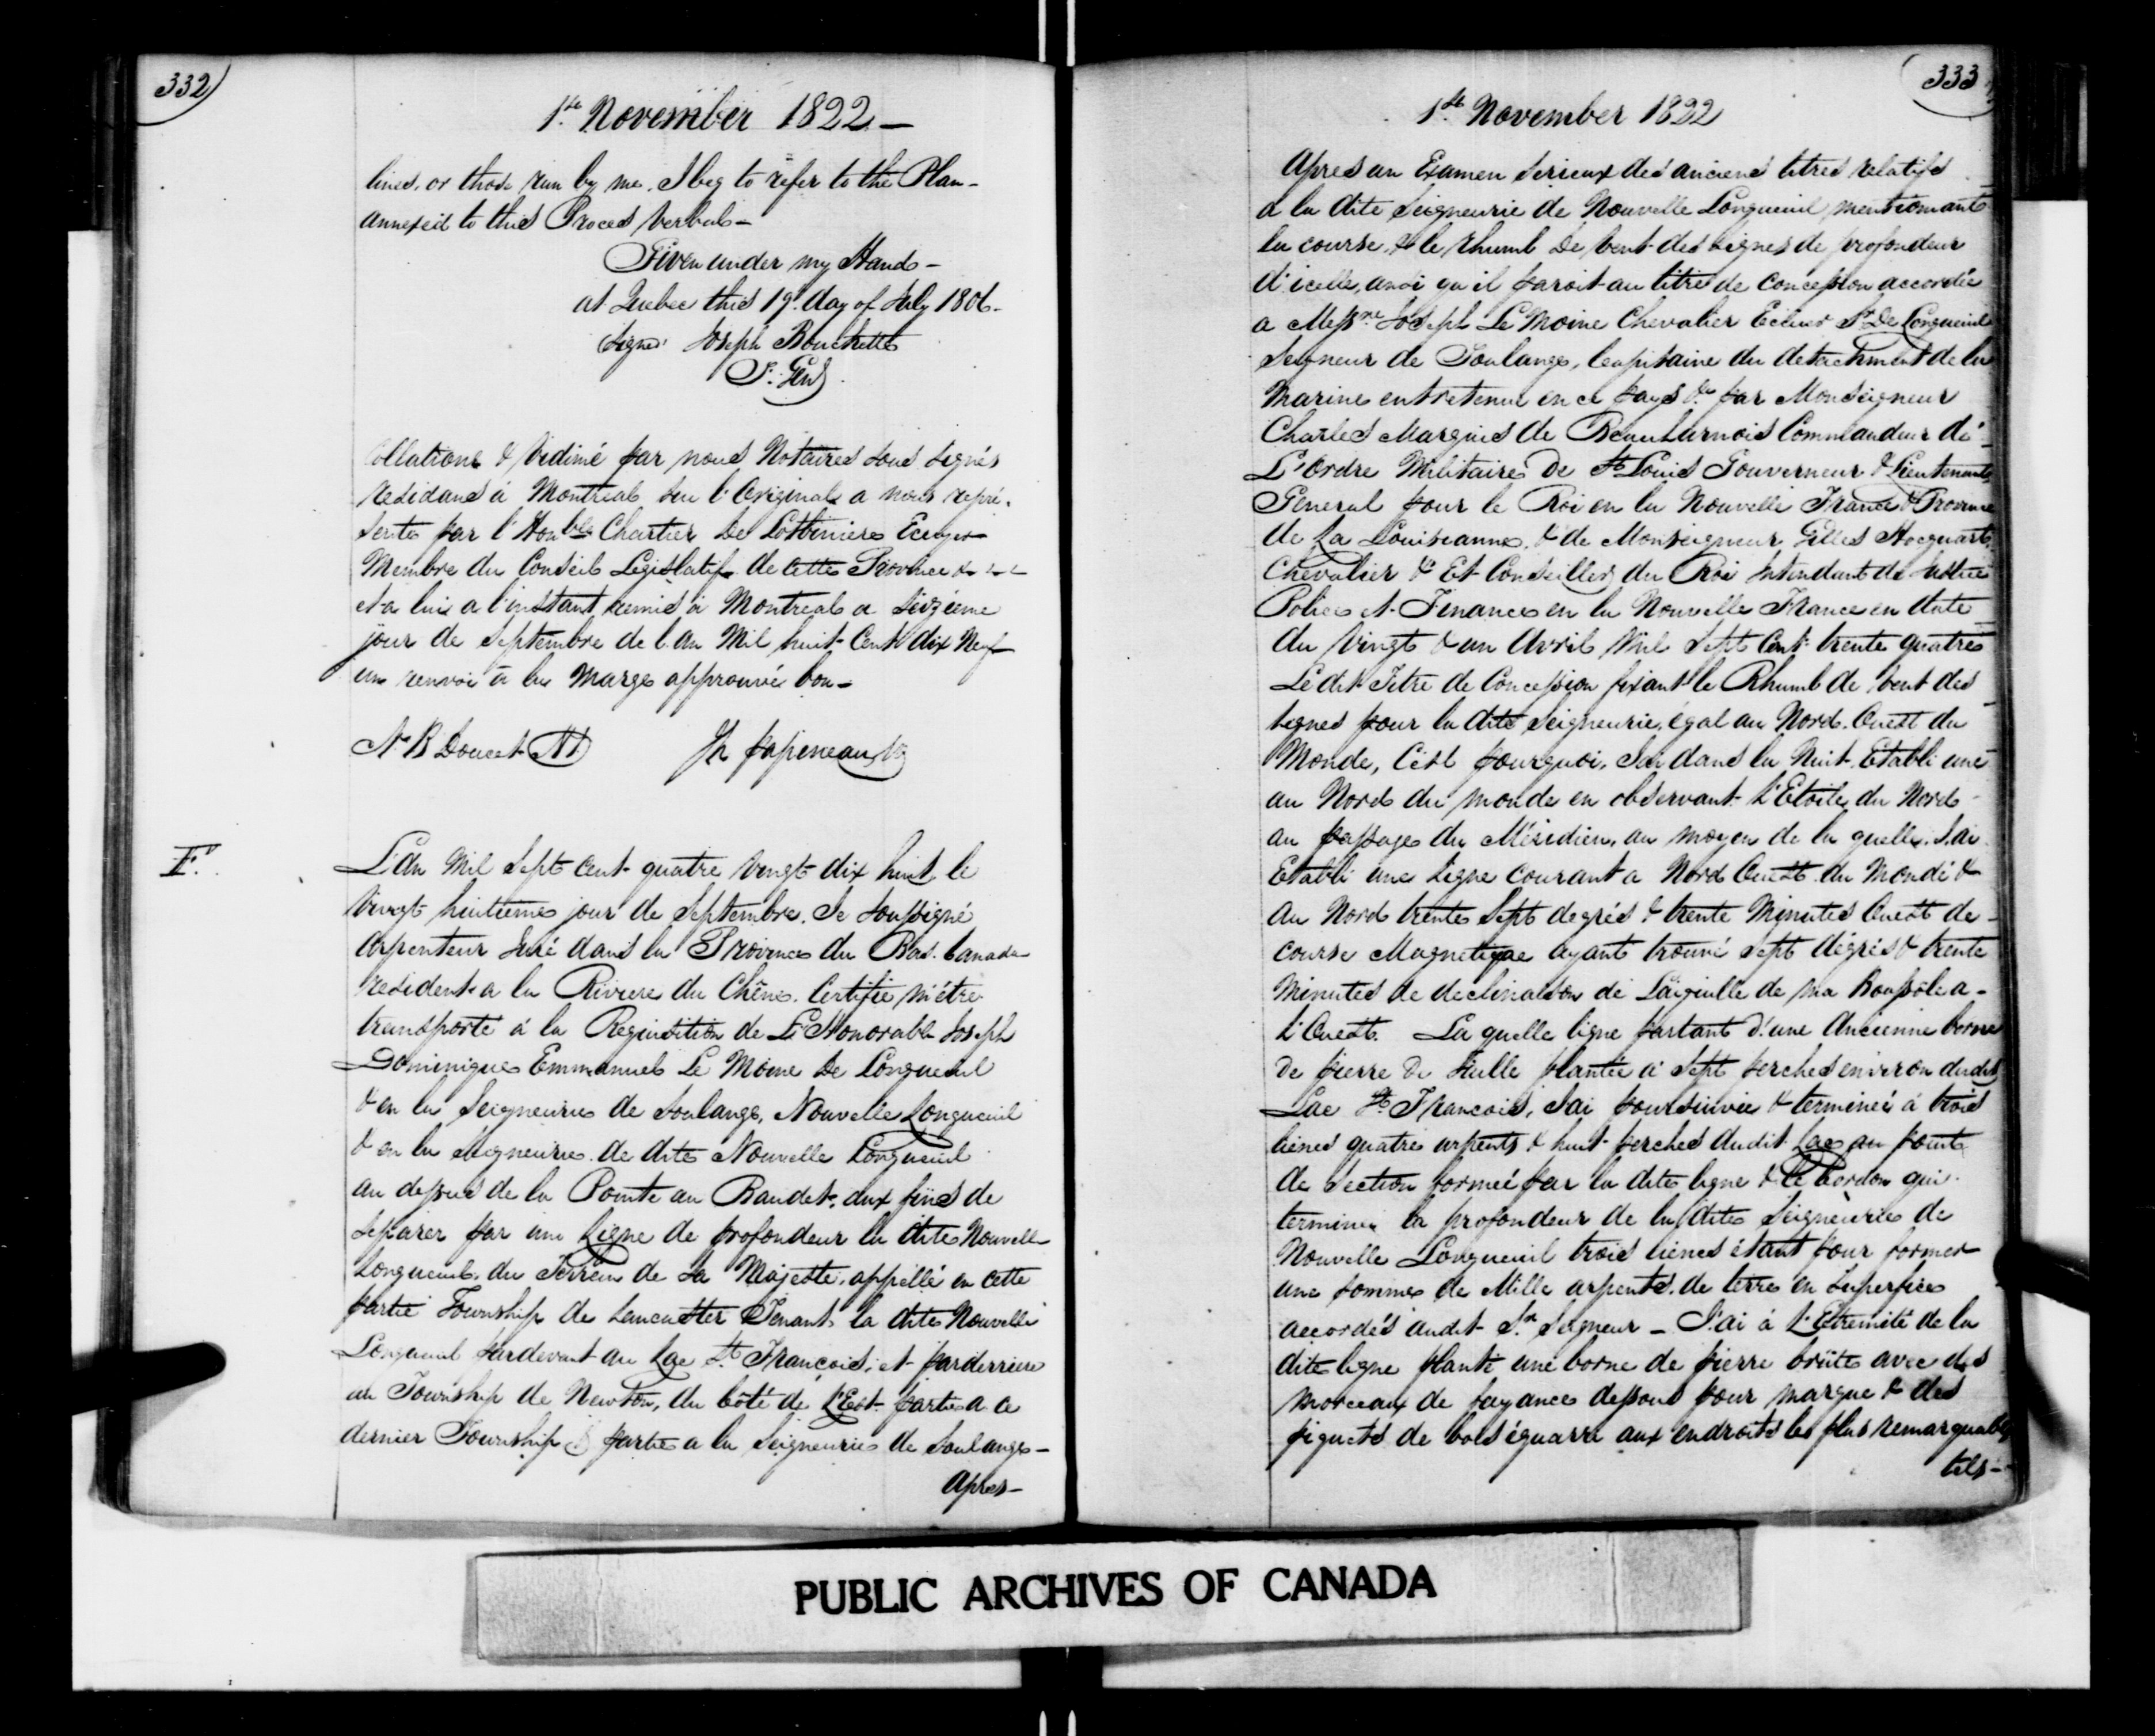 332
1st November 1822 —
lines, or those run by me, I beg to refer to the Plan -
annexed to this Proces Verbal -
Given under my Hand -
at Quebec this 19th day of July 1806 -
Signed Joseph Bouchette
S. Genl
Collationé & Vidimé par nous Notaires sous signés
residans à Montreal sur l'Original a nous repré-
senté par l'Honble Chartier De Lotbiniere Ecuyer
Membre du Conseil Legislatif de cette Province &
et a lui a l'instant remis à Montreal a Seizieme
jour de Septembre de l'an Mil huit Cent dix Neuf
un renvoi à la Marge approuvé bon -
N B Doucet NP
Jh papineau
F.
L'an Mil Sept Cent quatre Vingt dix huit le
Vingt huitieme jour de Septembre. Je Soussigné
Arpenteur Juré dans la Province du Bas-Canada
resident a la Riviere du Chêne. Certifie m'être
transporté à la Requisition de L'Honorable Joseph
Dominique Emmanuel Le Moine De Longueuil
& en la Seigneurie de Soulange, Nouvelle Longueuil
& en la Seigneurie de dite Nouvelle Longueuil
au dessus de la Pointe au Baudet, aux fins de
Separer par une Ligne de profondeur la dite Nouvelle
Longueuil du Terrein de Sa Majesté, appellé en cette
partie Township de Lancaster Tenant la dite Nouvelle
Longueuil pardevant au Lac St François, et parderriere
au Township de Newton, du Côté de L'Est partie a ce
dernier Township & partie a la Seigneurie de Soulange -
Apres -
333
1st November 1822
Apres un Examen Serieux des anciens titres relatifs
a la dite Seigneurie de Nouvelle Longueuil mentionant
la course & le Rhumb de vent des Lignes de profondeur
d'icelle, ansi qu'il paroit au titre de Concession accordée
a Messre Joseph Le Moine Chevalier Ecuier Sr De Longueuil
Seigneur de Soulange, Capitaine du detachment de la
Marine entretenue en ce pays &a par Monseigneur
Charles Marquis de Beauharnois Commandeur de
L'Ordre Militaire De St Louis Gouverneur & Lieutenant
General pour le Roi en la Nouvelle France & Province
de La Louisianne. & de Monseigneur Gilles Hocquart
Chevalier &c Et Conseiller du Roi Intendant de Justice
Police et Finance en la Nouvelle France en date
du Vingt & un Avril Mil Sept Cent trente quatre
Le dit Titre de Concession fixant le Rhumb de vent des
Lignes pour la dite Seigneurie, égal au Nord Ouest du
Monde, C'est pourquoi, J'ai dans la Nuit Etabli une
au Nord du monde en observant L'Etoile du Nord
au passage du Méridien, au moyen de la quelle J'ai
Etabli une Ligne Courant a Nord Ouest du Monde &
au Nord trente Sept degrés & trente Minutes Ouest de
course Magnetique ayant trouvé Sept dégrés & trente
Minutes de declinaison de L'aiguille de ma Boussole a -
L'Ouest. La quelle ligne partant d'une Ancienne borne
de pierre de taille plantée à Sept perches environ dudit
Lac St Francois, J'ai poursuivie & terminée à trois
lieues quatre arpents & huit perches dudit Lac au point
de Section formée par la dite ligne & le Cordon qui
termine la profondeur de la dite Seigneurie de
Nouvelle Longueuil trois lieues étant pour former
une Somme de Mille arpents de terre en Superficie
accordés audit Sr Seigneur - J'ai à L'Extremité de la
dite ligne planté une borne de pierre brûte avec des
morceaux de fayance dessous pour marque & des
piquets de bois équarré aux endroits les plus remarquables
tels -
PUBLIC ARCHIVES OF CANADA